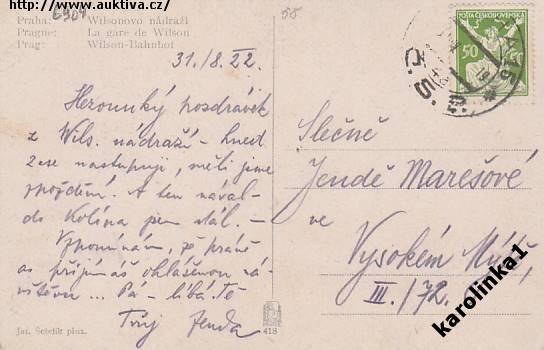 http://www.auktiva.cz/
6909
55
Praha: Wilsonovo nádraží
Prague: La gare de Wilson
Prag: Wilson-Bahnhof
31./8. 22.
Heroucký pozdrávek
z Wils. nádraží – hned
zase nastupuji, měli jsme
zpoždění. A ten nával –
do Kolína jsem stál. –
Vzpomínám, jak právě
as přijímáš ohlášenou ná-
vštěvu ... Pá – líbá Tě
Tvůj Jenda
Jar. Šetelík pinx.
418
Slečně
Jendě Marešové
ve
Vysokém Mýtě,
III./72.
POŠTA ČESKOSLOVENSKÁ
50
Č.S.P.
karolinka1